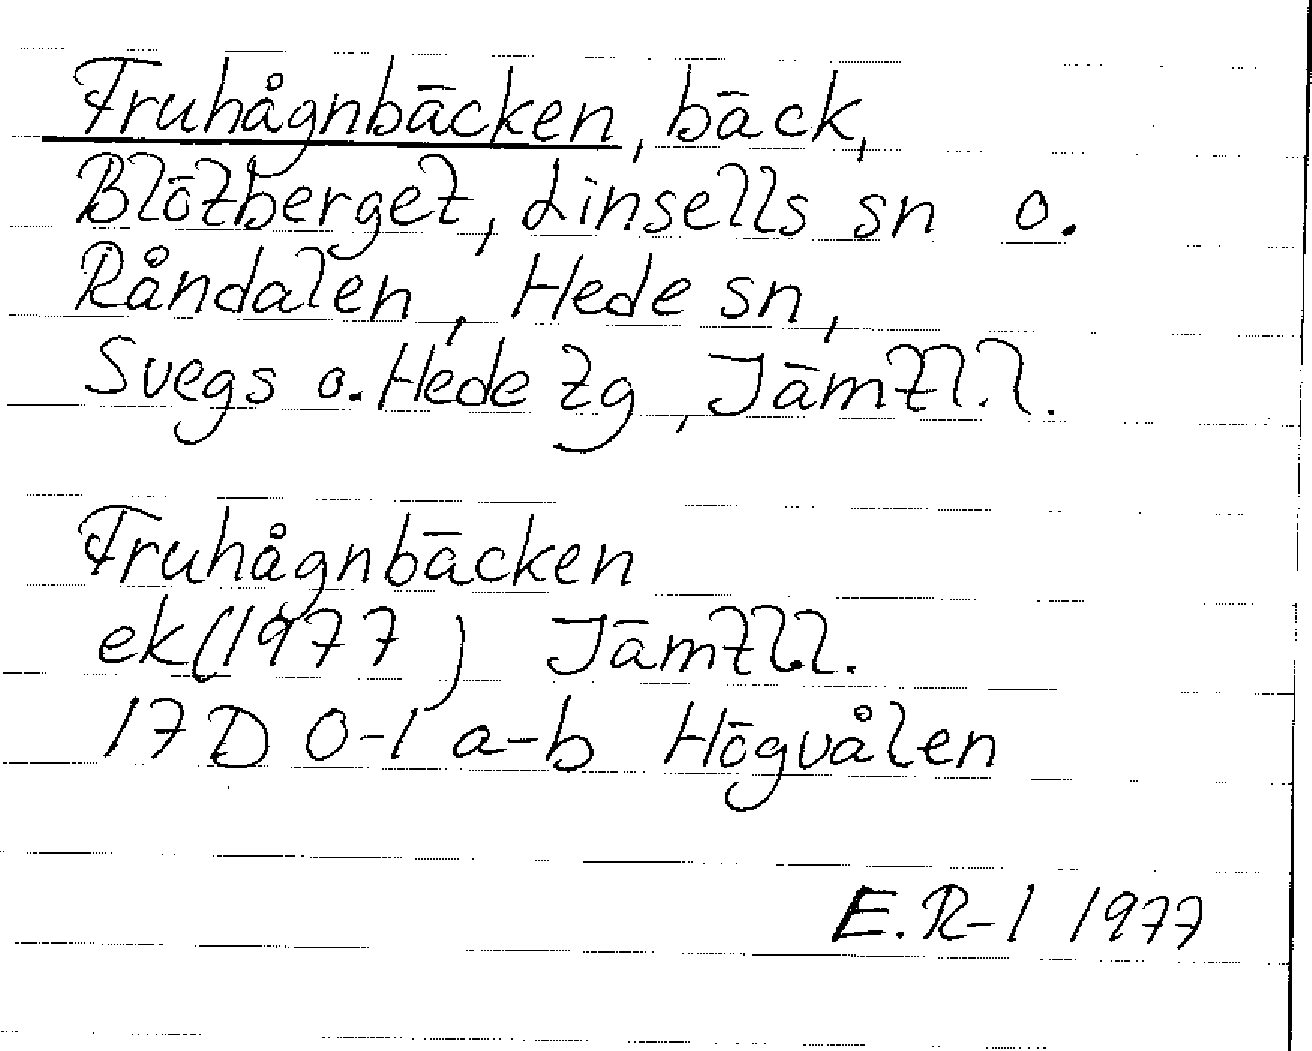 Fruhågnbäcken, bäck,
Blötberget, Linsells sn o.
Råndalen, Hede sn,
Svegs o. Hede tg, Jämtl.l.
Fruhågnbäcken
ek (1977) Jämtl.l.
17 D 0-1 a-b Högvålen
E.R-l 1977